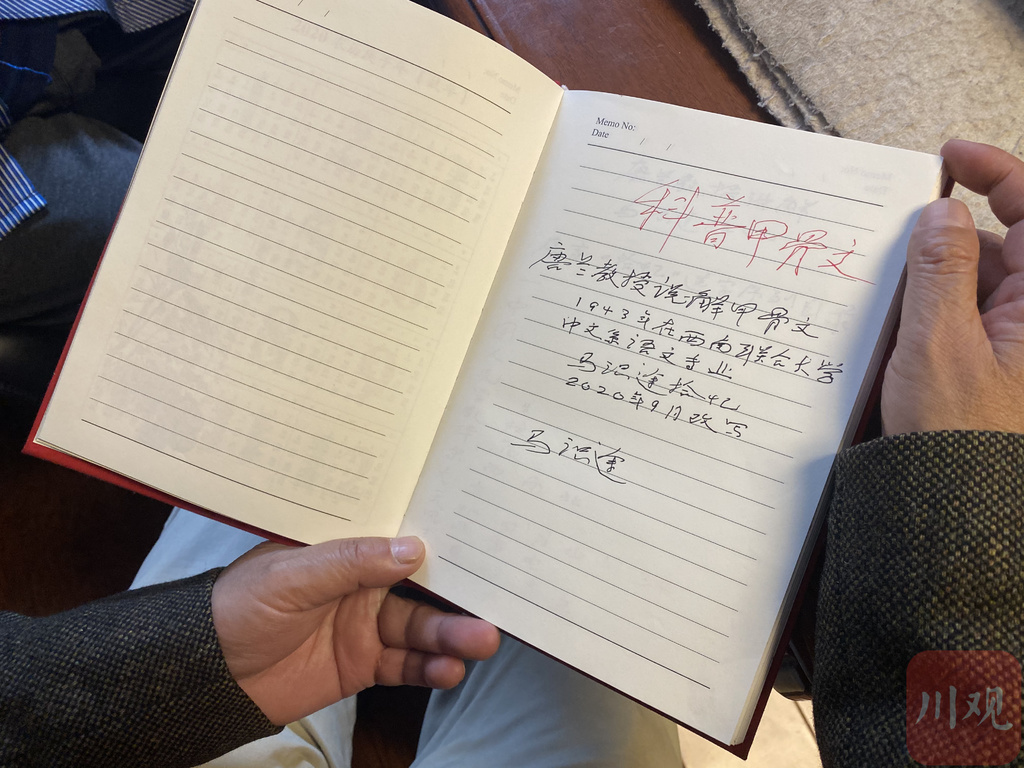 Memo No:
Date / /
科普甲骨文
唐兰教授说解甲骨文
1943年在西南联合大学
中文系语文专业
马识途拾忆
2020年9月改写
马识途
川观